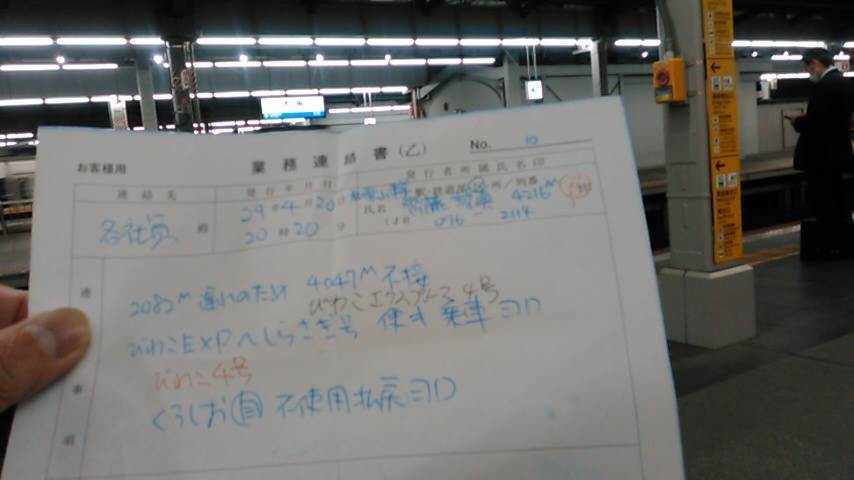 お客様用
業務連絡書(乙)
No. 10
連絡先
発行年月日
発行者所属氏名印
各社員 殿
29年4月20日
20時20分
駅・鉄道部 所/列番
4216M
氏名
2114
連
事
項
2082M 遅れのため 4047M 不接
びわこエクスプレス 4号
びわこEXPへしらさぎ号 使才 乗車ヨロ
びわこ4号
くろしお 自 不使用払戻ヨロ